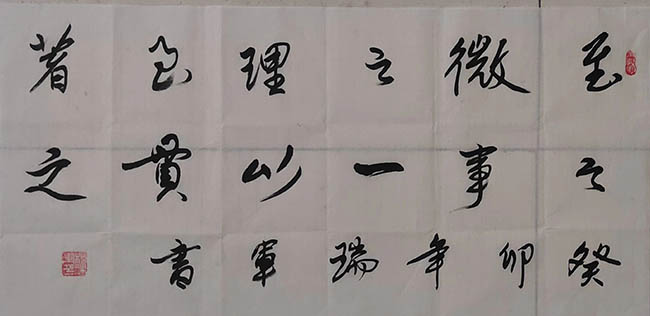 至微之理至著
之事一以貫之
癸卯年瑞軍書